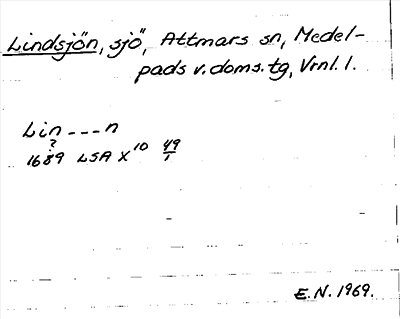 Lindsjön, sjö, Attmars sn, Medel-
pads v. doms. tg, Vrnl. l.
Lin---n
?
1689 LSA X 10 49/1
E.N. 1969.